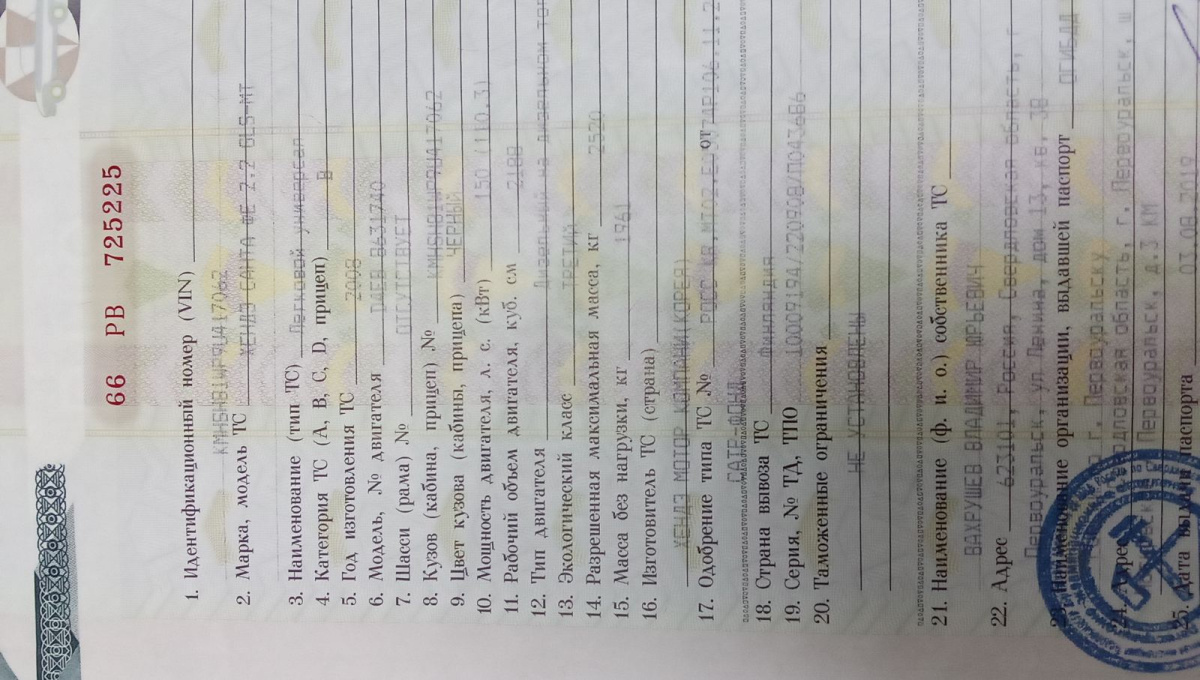 66 РВ 725225
1. Идентификационный номер (VIN)
KMHSH81WP9U417062
2. Марка, модель ТС ХЕНДЭ САНТА ФЕ 2.2 GLS-MT
3. Наименование (тип ТС) Легковой универсал
4. Категория ТС (А, В, С, D, прицеп) В
5. Год изготовления ТС 2008
6. Модель, № двигателя D4EB 8631740
7. Шасси (рама) № ОТСУТСТВУЕТ
8. Кузов (кабина, прицеп) № KMHSH81WP9U417062
9. Цвет кузова (кабины, прицепа) ЧЕРНЫЙ
10. Мощность двигателя, л. с. (кВт) 150 (110.3)
11. Рабочий объем двигателя, куб. см 2188
12. Тип двигателя Дизельный на дизельном
13. Экологический класс ТРЕТИЙ
14. Разрешенная максимальная масса, кг 2520
15. Масса без нагрузки, кг 1961
16. Изготовитель ТС (страна)
ХЕНДЭ МОТОР КОМПАНИ(КОРЕЯ)
17. Одобрение типа ТС № РОССИЯ, от
САТР-ФОНД
18. Страна вывоза ТС Финляндия
19. Серия, № ТД, ТПО 10009194/220908/П043686
20. Таможенные ограничения
НЕ УСТАНОВЛЕНЫ
21. Наименование (ф. и. о.) собственника ТС
ВАХРУШЕВ ВЛАДИМИР ЮРЬЕВИЧ
22. Адрес 623101, Россия, Свердловская область, г
Первоуральск, ул Ленина, дом 13, кв. 38
23. Наименование организации, выдавшей паспорт ОГИБДД
г. Первоуральску
24. Адрес область, г. Первоуральск, ш
Первоуральск, д.3 КМ
25. Дата выдачи паспорта 03.08.2018